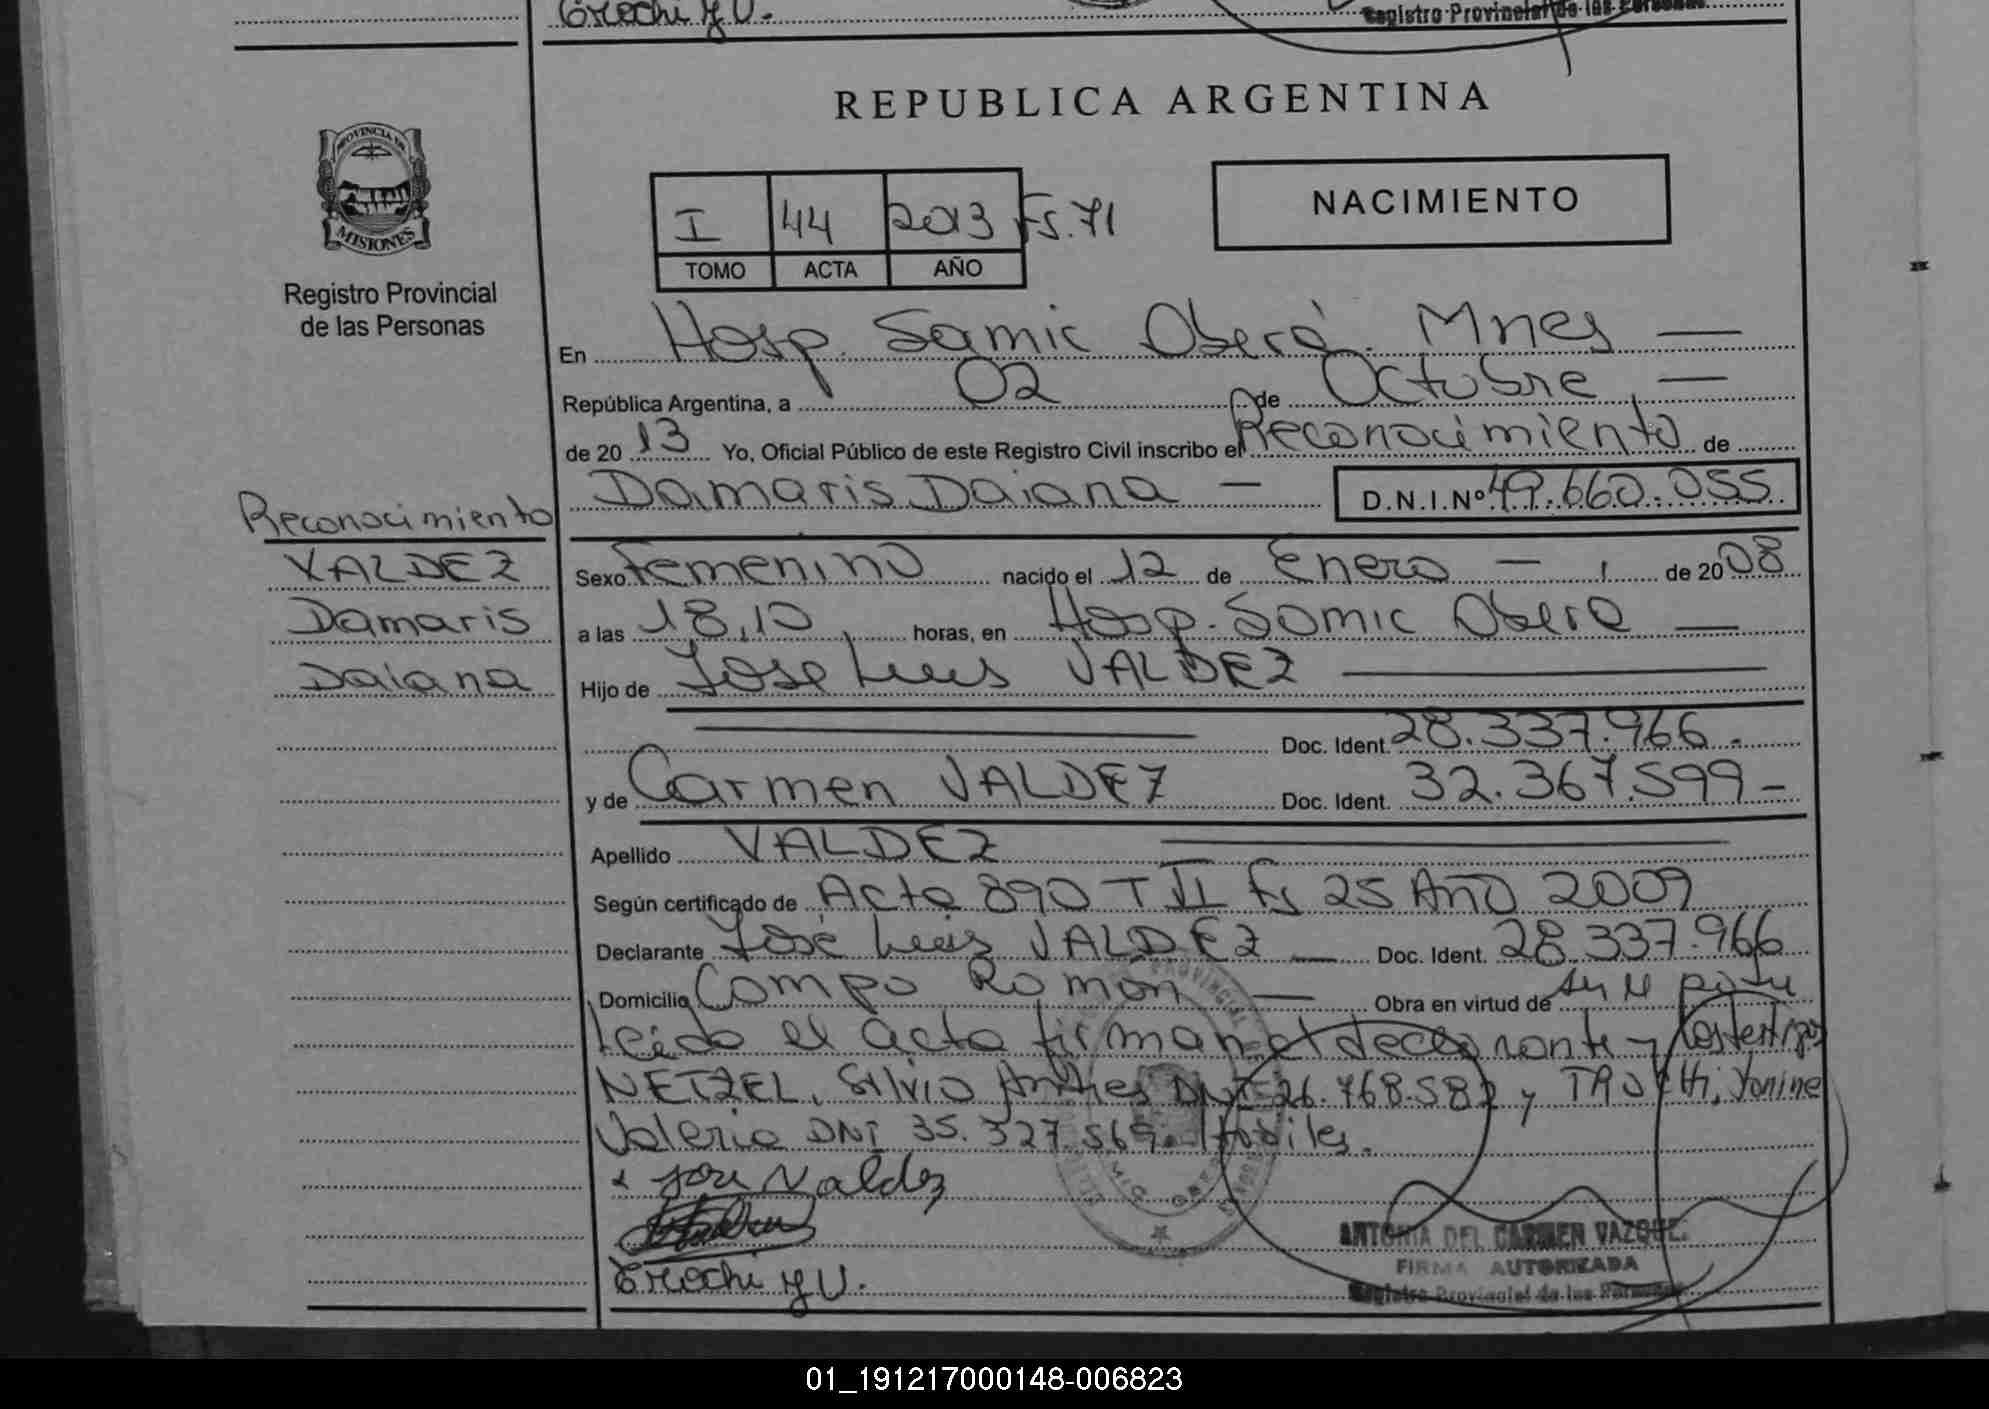 Trochi Y V.
Registro Provincial de las Personas
REPUBLICA ARGENTINA
PROVINCIA DE
MISIONES
Registro Provincial
de las Personas
NACIMIENTO
I 44 2013 Fs. 71
TOMO ACTA AÑO
En Hosp. Samic Oberá. Mnes
República Argentina, a 02 de Octubre,
de 2013 Yo, Oficial Público de este Registro Civil inscribo el Reconocimiento de
Damaris Daiana D.N.I.Nº 49.660.055
Reconocimiento
VALDEZ
Damaris
Daiana
Sexo Femenino nacido el 12 de Enero de 2008
a las 18,10 horas, en Hosp. Samic Obera
Hijo de Jose Luis VALDEZ
Doc. Ident. 28.337.966.
y de Carmen VALDEZ Doc. Ident. 32.367.599
Apellido VALDEZ
Según certificado de Acta 890 T II Fs 25 Año 2009
Declarante José Luis VALDEZ Doc. Ident. 28.337.966
Domicilio Campo Ramón Obra en virtud de su petu
Leído el acta firman el declarante y los testigos
NETZEL, Silvio Andres DNI 26.768.582 y TROCHI, Yanine
Valeria DNI 35.327.569. Habiles.
x Jose Valdez
Trochi Y V.
ANTONIA DEL CARMEN VAZQUEZ
FIRMA AUTORIZADA
Registro Provincial de las Personas
01_191217000148-006823